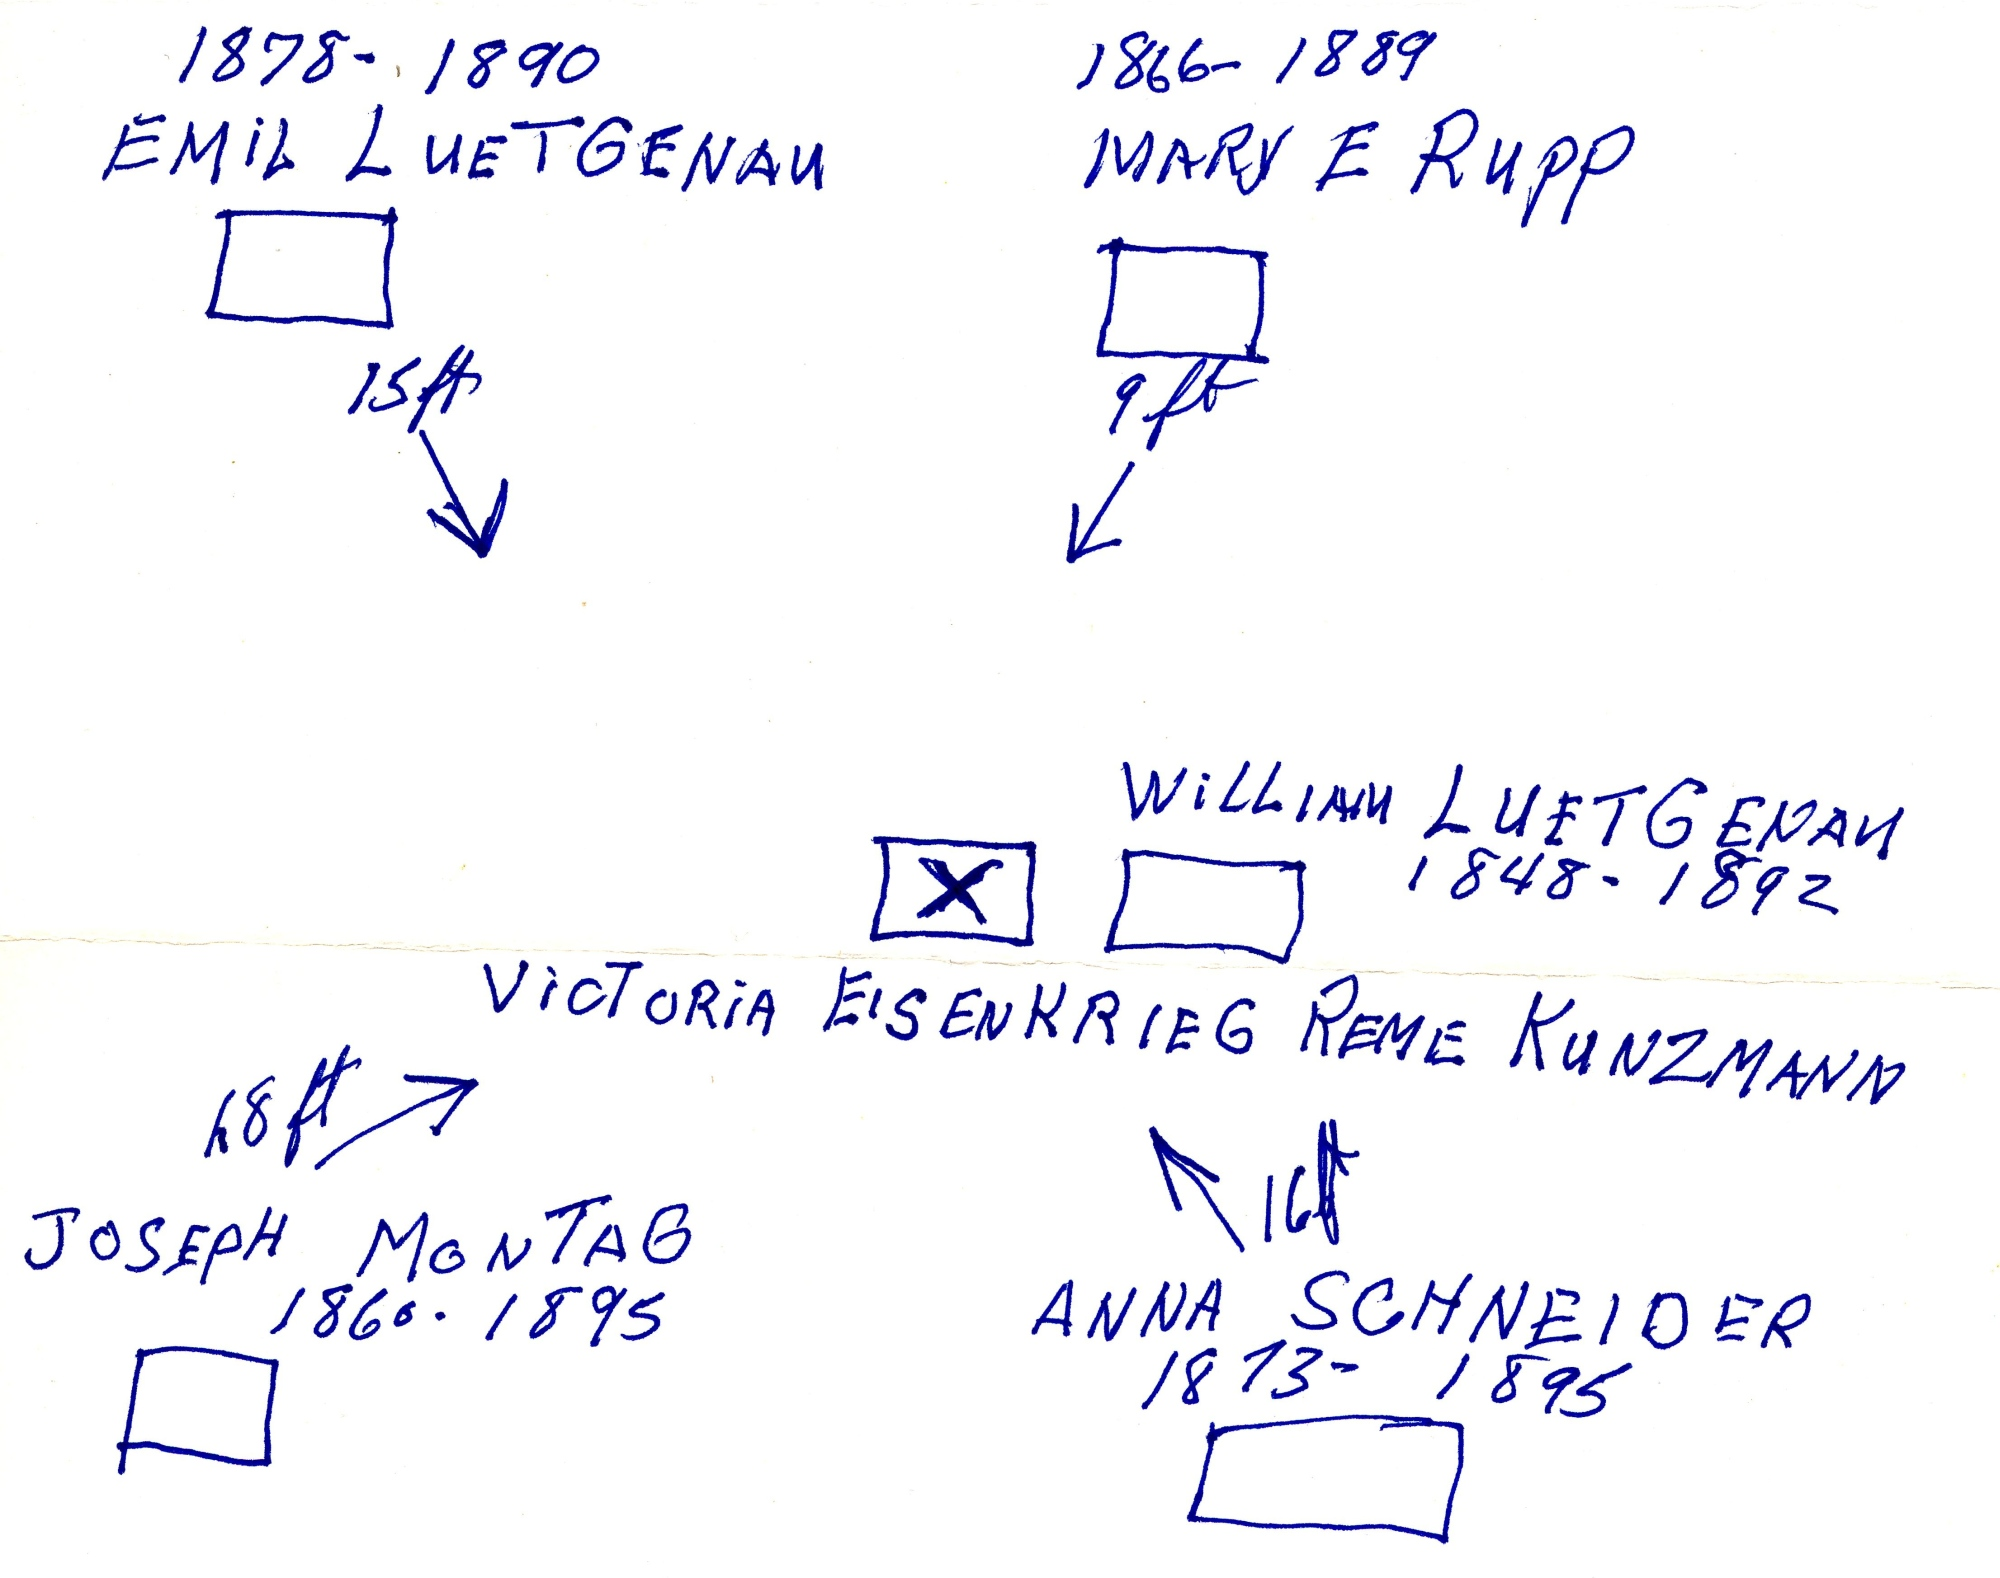 1878- 1890
EMiL LUETGENAU
1866- 1889
MARY E RUPP
15ft
9 ft
WiLLIAM LUETGENAU
1848- 1892
X
VicToRiA EISENKRIEG REME KUNZMANN
18 ft
16ft
JOSEPH MONTAG
1860- 1895
ANNA SCHNEIDER
1873- 1895